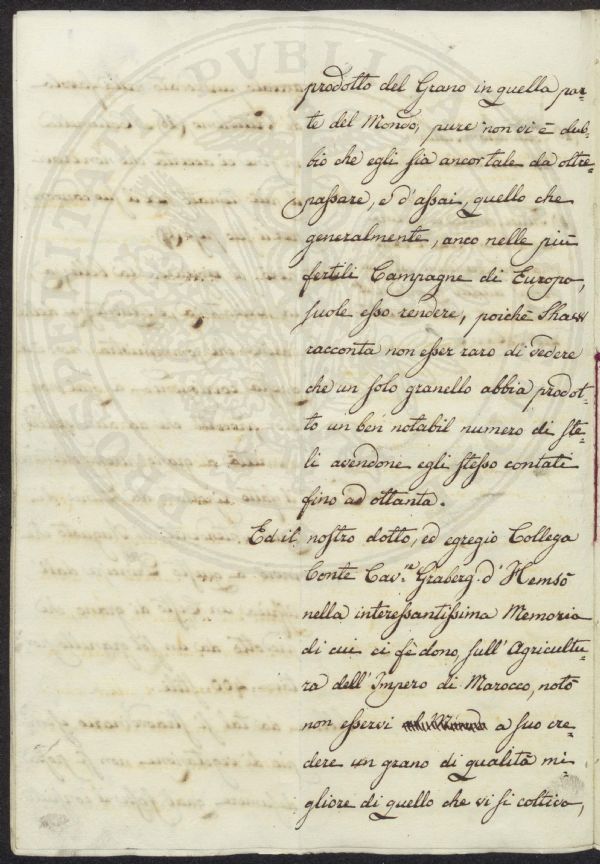 prodotto del Grano in quella par-
te del Mondo, pure non vi è dub-
bio che egli sia ancor tale da oltre-
passare, e d'assai, quello che
generalmente, anco nelle più
fertili Campagne di Europa,
suole esso rendere, poichè Shaw
racconta non esser raro di vedere
che un solo granello abbia prodot-
to un ben notabil numero di ste-
li avendone egli stesso contati
fino ad ottanta.
Ed il nostro dotto, ed egregio Collega
Conte Cav.re Graberg d'Hemsö
nella interessantissima Memoria
di cui ci fè dono, sull'Agricultu-
ra dell'Impero di Marocco, notò
non esservi a suo cre-
dere un grano di qualità mi-
gliore di quello che vi si coltiva,
PROSPERITATI PUBLICAE